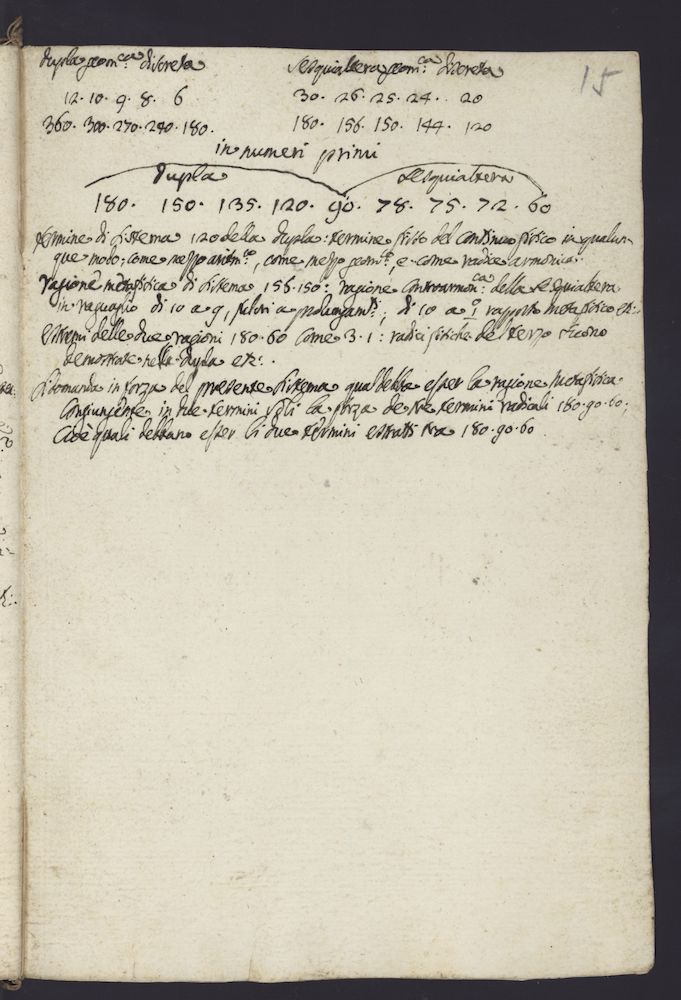 Dupla geom.ca discreta Sesquialtera geom.ca discreta
15
12. 10. 9. 8. 6 30. 26. 25. 24. 20
360. 300. 270. 240. 180. 180. 156. 150. 144. 120
in numeri primi
Dupla Sesquialtera
180. 150. 135. 120. 90. 78. 75. 72. 60
termine di sistema 120 della dupla: termine fisso del continuo fisico in qualun-
que modo; come mezzo aritm.co, come mezzo geom.co, e come radice armonica.
ragione metafisica di sistema 156.150: ragione controarmon.ca della sesquialtera
in raguaglio di 10 a 9, di 10 a rapporto metafisico etc:
estremi delle due ragioni 180.60 come 3.1: radici fisiche del terzo suono
demostrate nella dupla etc:.
Si domanda in forza del presente sistema qual debba esser la ragione metafisica
congiungente in due termini soli la forza de tre termini radicali 180.90.60;
cioè quali debbano esser li due termini estratti tra 180.90.60